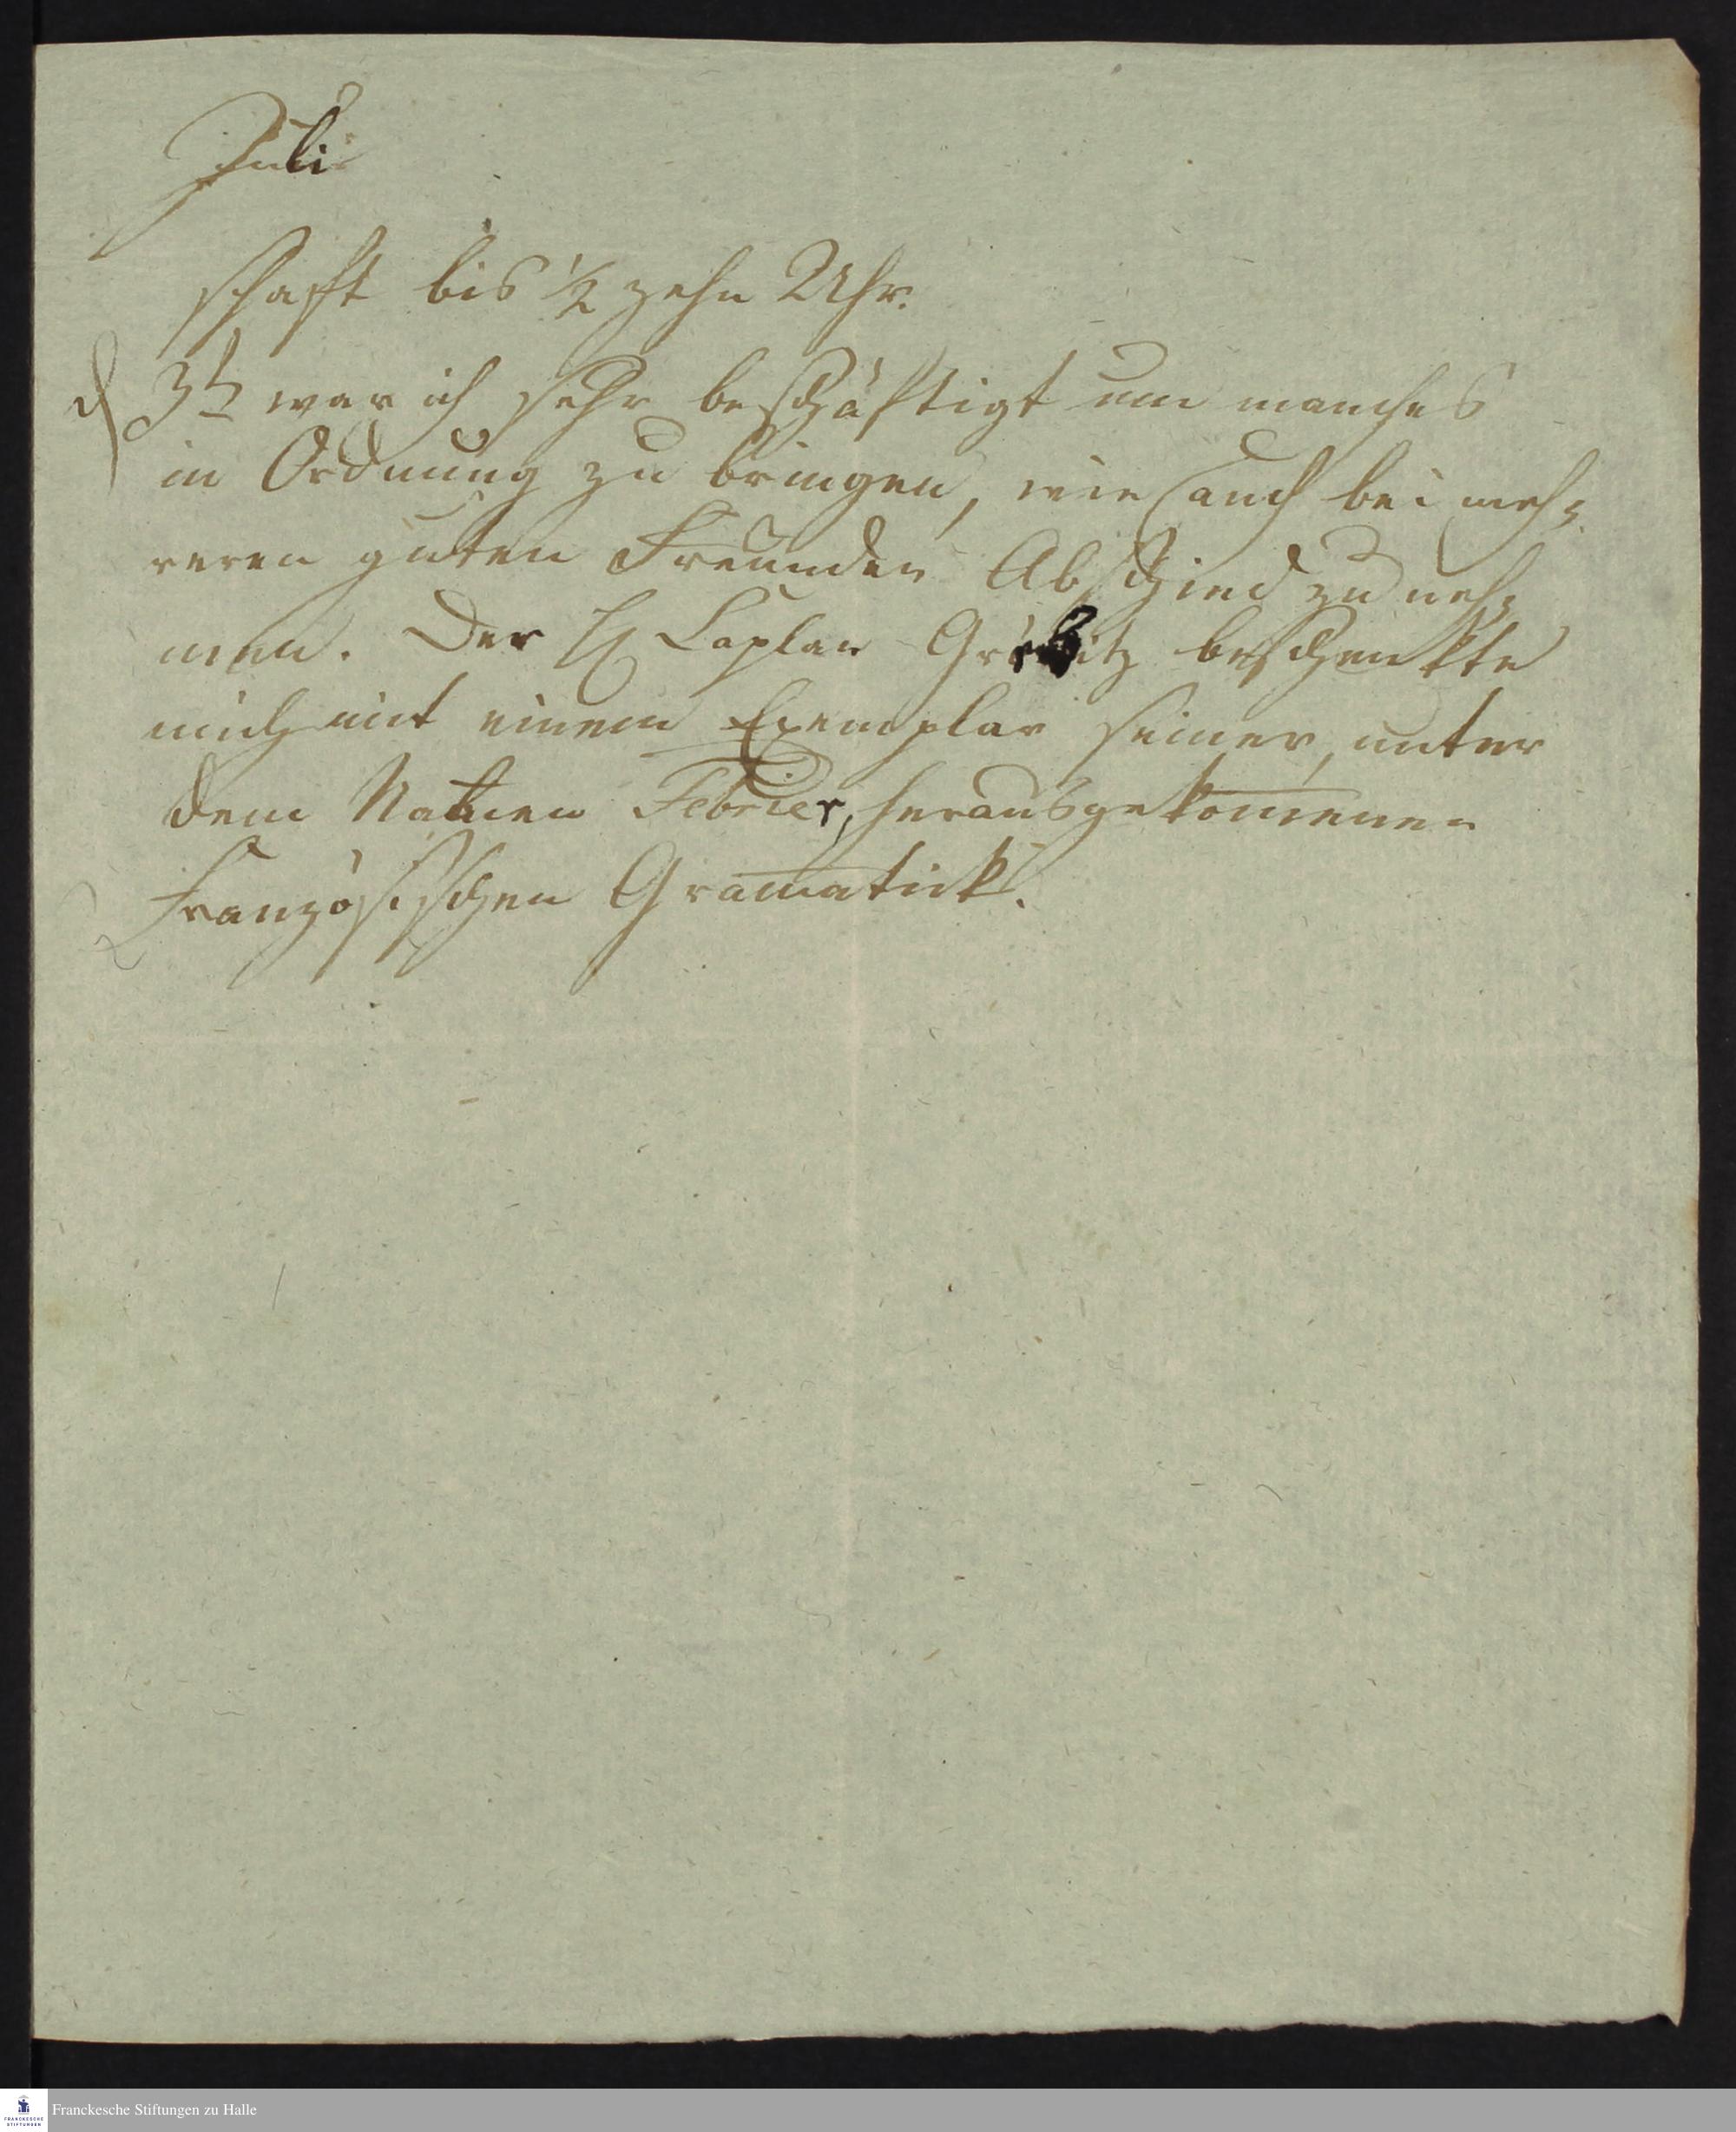 Juli
schaft bis ½ zehn Uhr.
d 3t war ich sehr beschäftigt um manches
in Ordnung zu bringen, wie auch bei meh=
reren guten Freunden Abschied zu neh=
men. Der H Caplan beschenkte
mich mit einem Exemplar seiner, unter
dem Namen Febrier, herausgekom̅enen
Französischen Gram̅atick.
Franckesche Stiftungen zu Halle
FRANCKESCHE
STIFTUNGEN